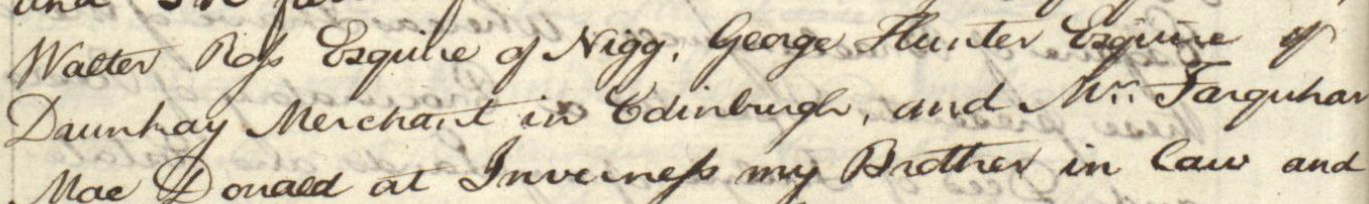 and
Walter Ross Esquire of Nigg, George Hunter Esquire of
Daunhay Merchant in Edinburgh, and Mr. Farquhar
Mac Donald at Inverness my Brother in law and